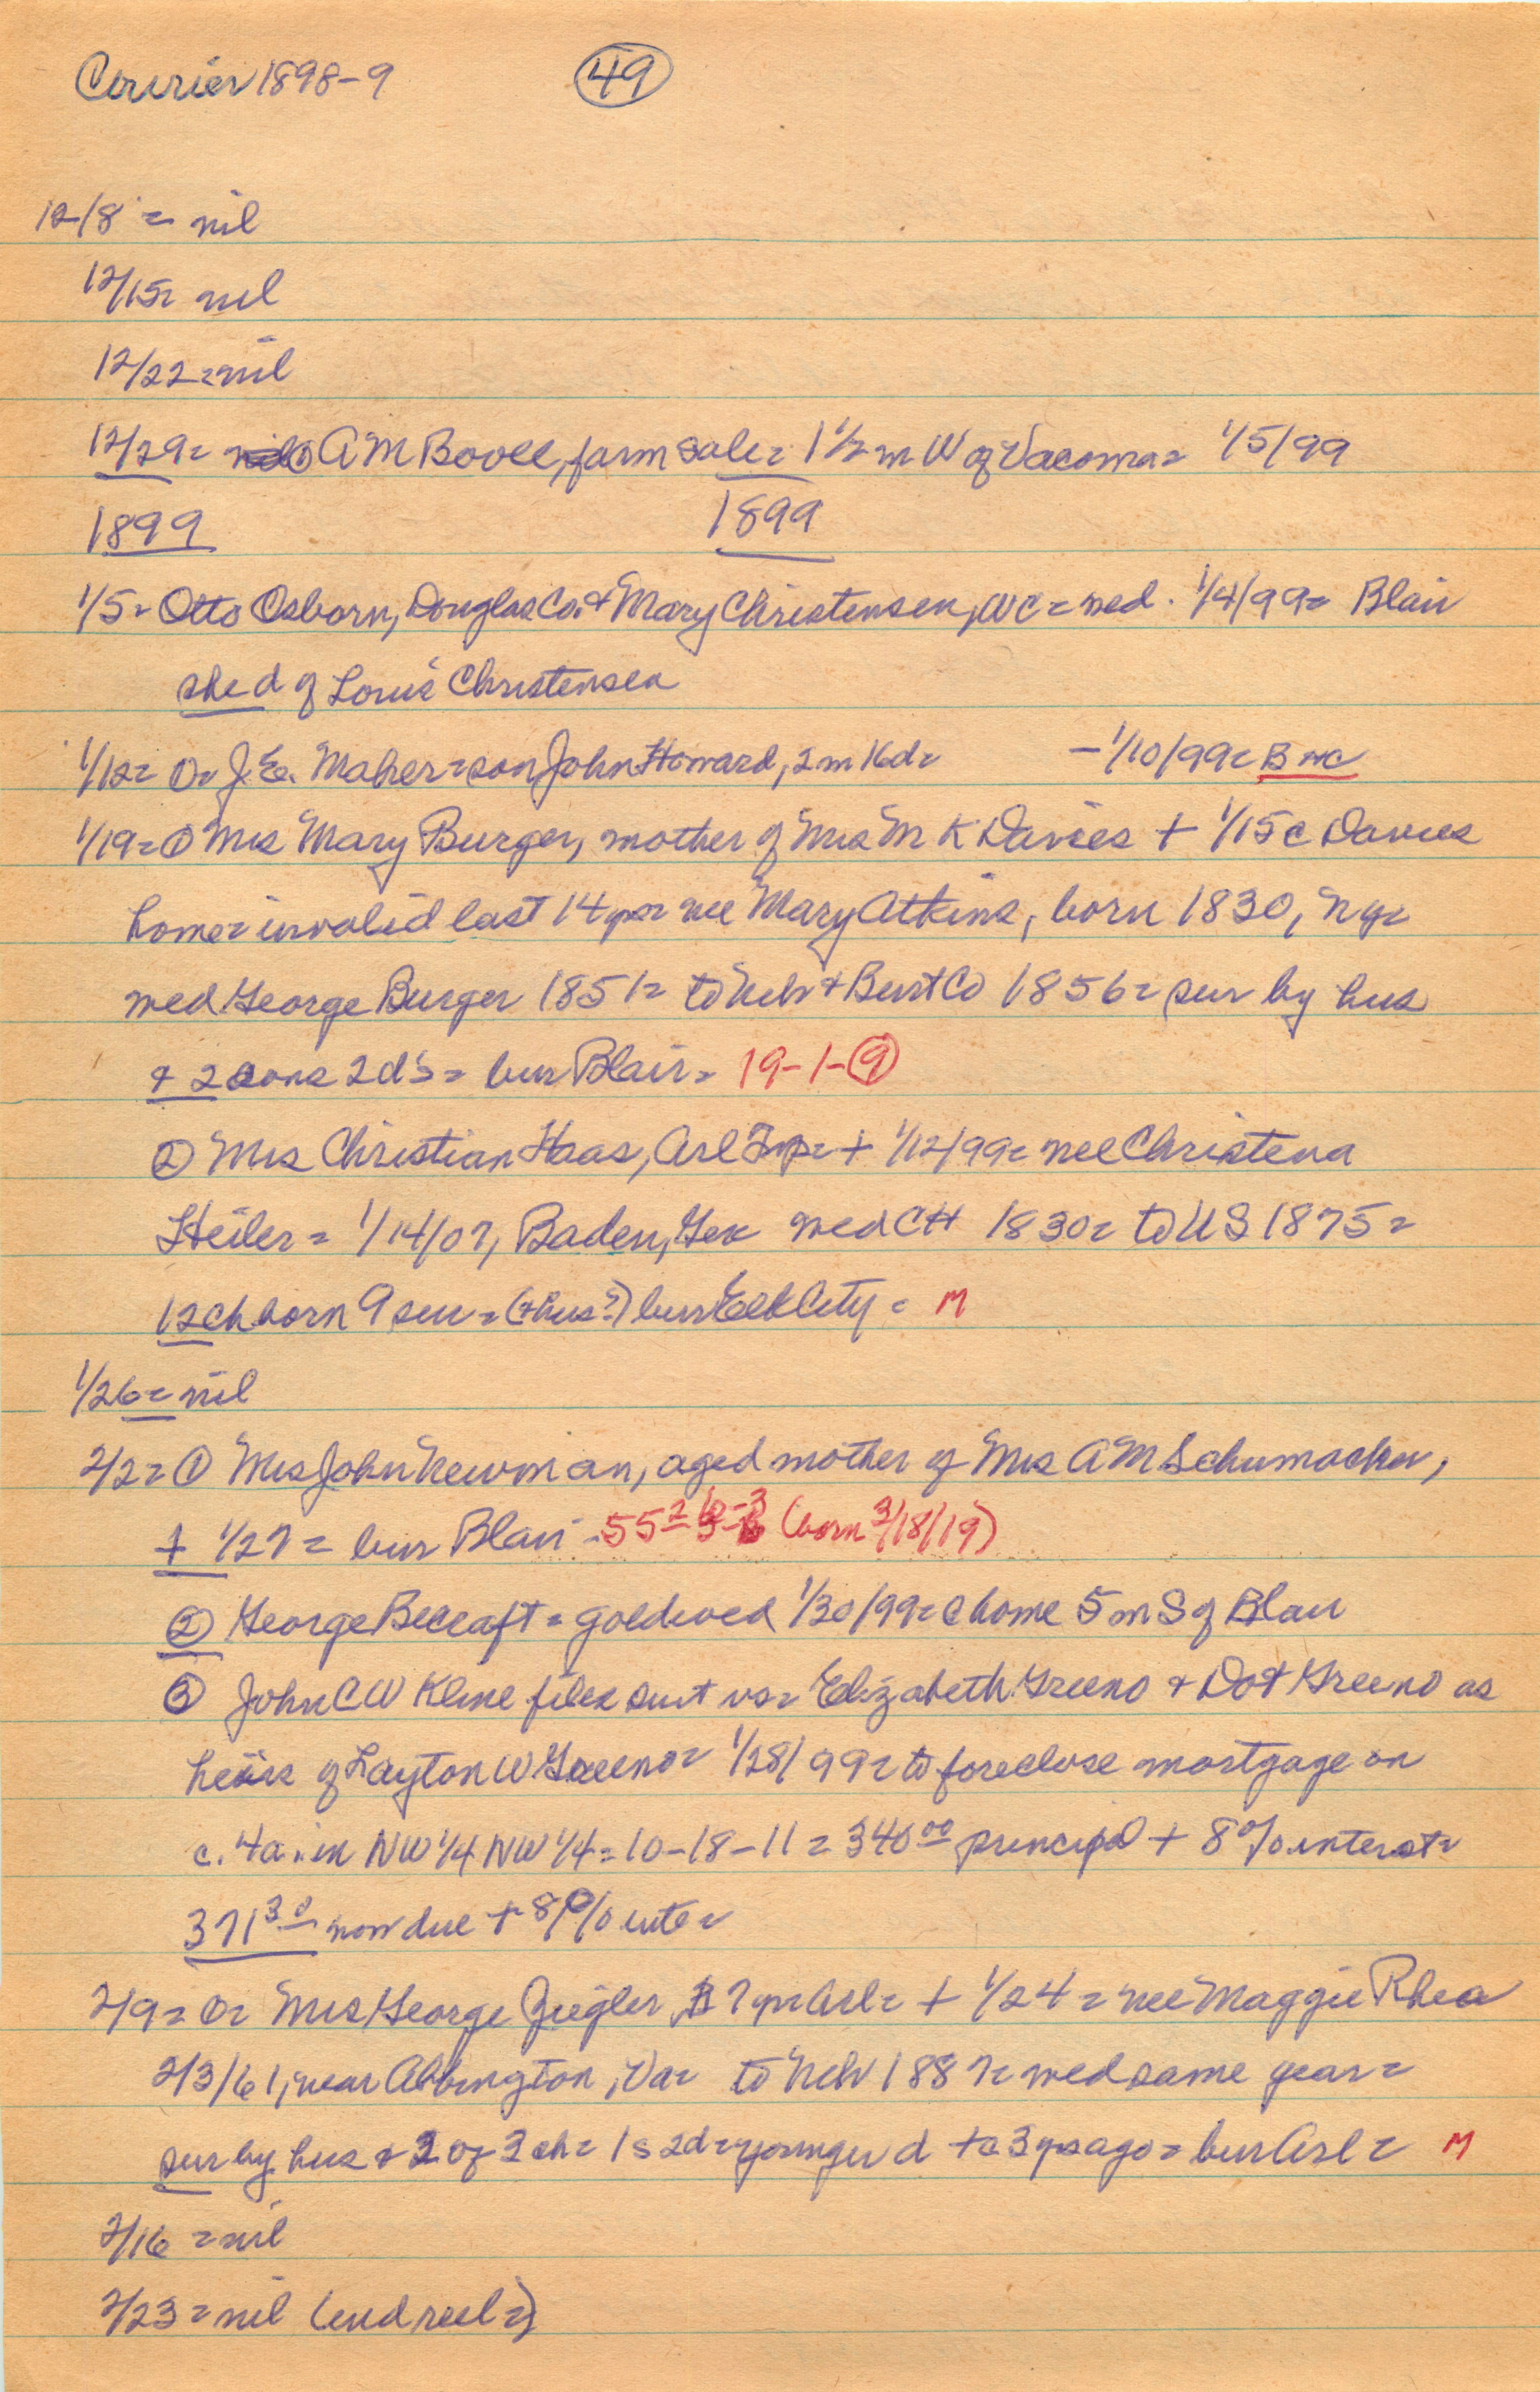 Courier 1898-9 49
12/8 = nil
12/15= nil
12/22=nil
12/29= A M Bovee, farm sale= 1 1/2 m W of Vacoma= 1/5/99
1899 1899
1/5= Otto Osborn, Douglas Co. + Mary Christensen, WC = wed. 1/4/99= Blair
she d of Louis Christensen
1/12= O= J.E. Maher=son John Howard, 2m 16d= -1/10/99= B wc
1/19=① Mrs Mary Burger, mother of Mrs M K Davies + 1/15 c Davies
home=invalid last 14 yrs= nee Mary Atkins, born 1830, NY=
wed George Burger 1851= to Neb + Burt Co 1856= sur by hus
+ 2 sons 2d's= bur Blair= 19-1-⑨
② Mrs Christian Haas, Arl Twp= + 1/12/99= nee Christena
Heiler= 1/14/07, Baden, Ger wed CH 1830= to US 1875=
12 ch born 9 sur=(+hus?) bur Elk City= M
1/26=nil
2/2=① Mrs John Newman, aged mother of Mrs A M Schumacher,
+ 1/27= bur Blair - 55= (born 3/18/19)
② George Becraft= gold wed 1/30/99= c home 5 m S of Blair
③ John C W Kline files suit vs= Elizabeth Greeno + Dot Greeno as
heirs of Layton W Greeno= 1/28/99= to foreclose mortgage on
c. 4a. in NW 1/4 NW 1/4=10-18-11= 340 00 principal + 8% interest=
371 30 now due + 8% inte=
2/9= O= Mrs George Ziegler, 7 yr= Arl= + 1/24= nee Maggie Rhea
2/3/61, near Abbington, Va= to Neb 1887= wed same year=
sur by hus + 2 of 3 ch= 1s 2d=younger d +c 3 yrs ago= bur Arl= M
2/16=nil
2/23=nil (end reel=)